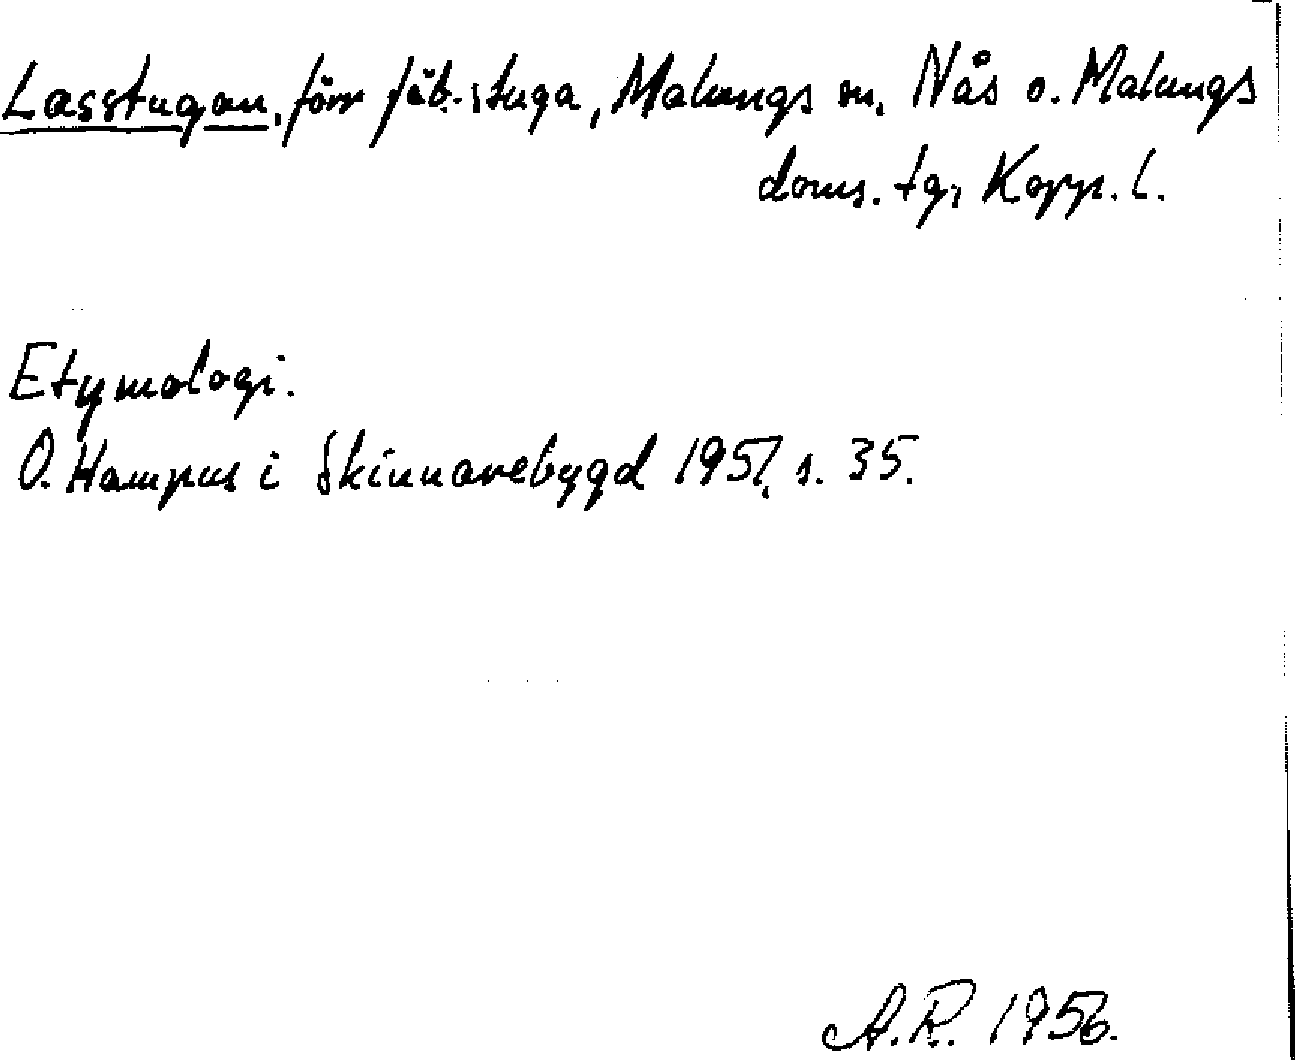 Lasstugan, förr fäb.stuga, Malungs sn, Nås o. Malungs
doms. tg, Kopp. l.
Etymologi.
O. Hampus i Skinnarebygd 1951, s. 35.
A.R. 1956.